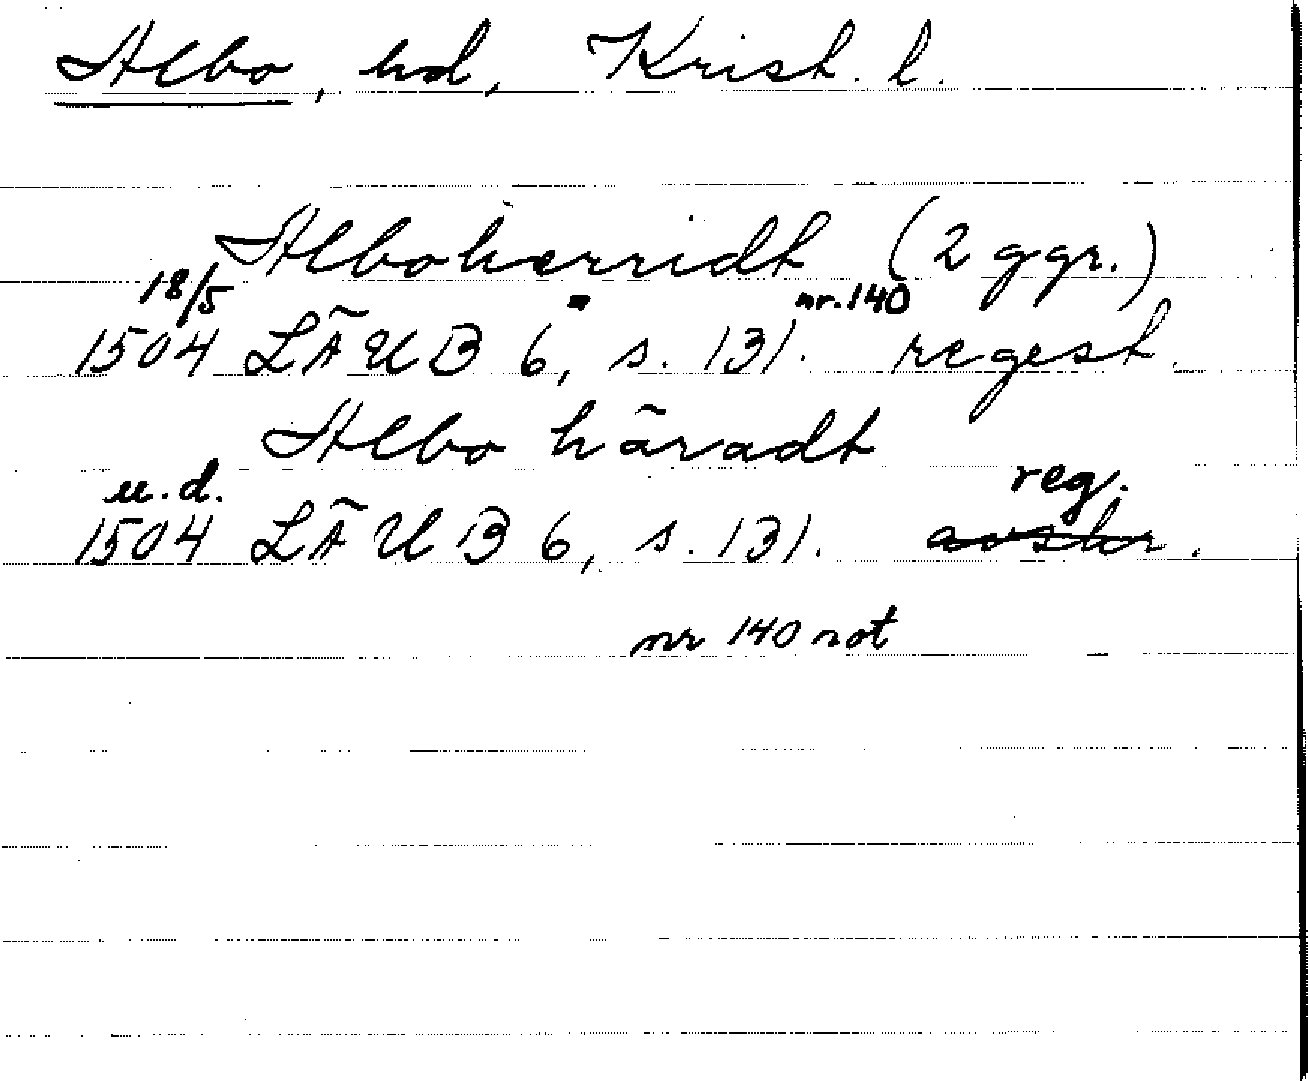 Albo, hd, Krist. l.
Alboherridt (2 ggr.)
18/5 nr. 140
1504 LÄUB 6, s. 131. regest.
Albo häradt
u.d. reg.
1504 LÄUB 6, s. 131. avskr.
nr 140 not